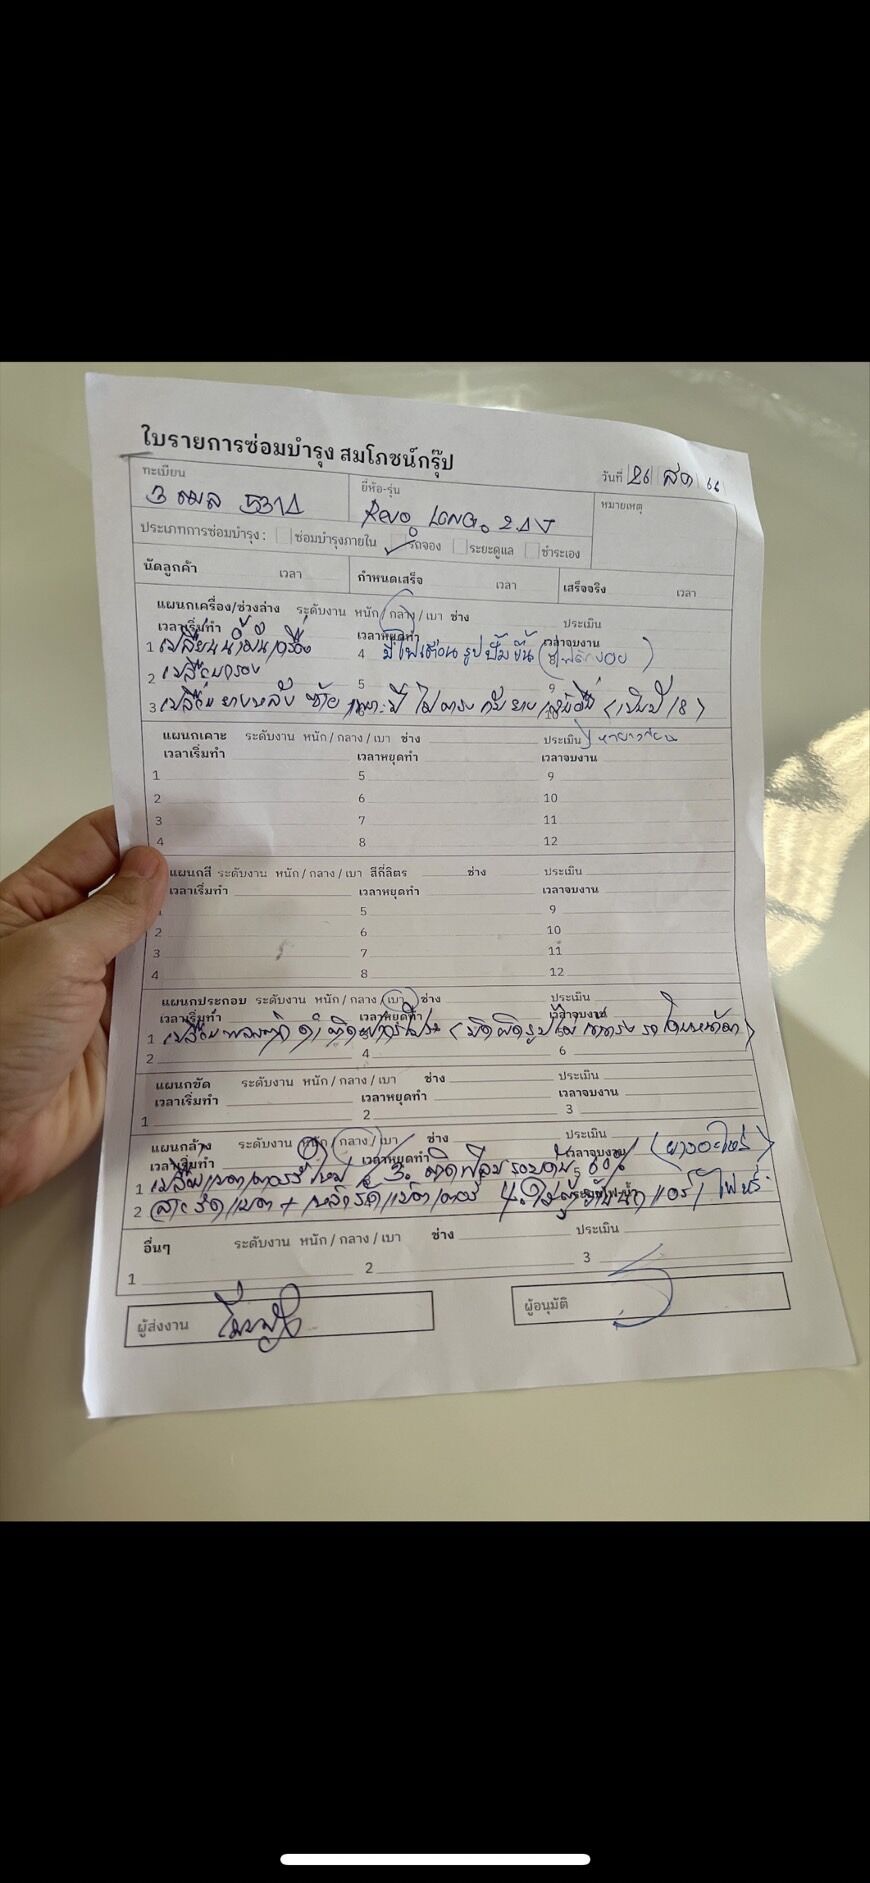 ใบรายการซ่อมบำรุง สมโภชน์กรุ๊ป
วันที่ 26 / สค / 66
ทะเบียน
ยี่ห้อ-รุ่น
หมายเหตุ
3 5314
Revo LONG 2.4J
ประเภทการซ่อมบำรุง : ซ่อมบำรุงภายใน รถจอง ระยะดูแล ชำระเอง
นัดลูกค้า เวลา กำหนดเสร็จ เวลา เสร็จจริง เวลา
แผนกเครื่อง/ช่วงล่าง ระดับงาน หนัก / กลาง / เบา ช่าง ประเมิน
เวลาเริ่มทำ เวลาหยุดทำ เวลาจบงาน
1 เปลี่ยนน้ำมันเครื่อง 4 มีไฟเตือนรูปปั๊มขึ้น
2 เปลี่ยนกรอง 5 9
3 เปลี่ยนยางหลังซ้าย เพราะปีไม่ตรงกับยางเส้นอื่น (เป็นปี 18)
แผนกเคาะ ระดับงาน หนัก / กลาง / เบา ช่าง ประเมิน
เวลาเริ่มทำ เวลาหยุดทำ เวลาจบงาน
1 5 9
2 6 10
3 7 11
4 8 12
แผนกสี ระดับงาน หนัก / กลาง / เบา สีกี่ลิตร ช่าง ประเมิน
เวลาเริ่มทำ เวลาหยุดทำ เวลาจบงาน
1 5 9
2 6 10
3 7 11
4 8 12
แผนกประกอบ ระดับงาน หนัก / กลาง / เบา ช่าง ประเมิน
เวลาเริ่มทำ เวลาหยุดทำ เวลาจบงาน
1 เปลี่ยน
2 4 6
แผนกขัด ระดับงาน หนัก / กลาง / เบา ช่าง ประเมิน
เวลาเริ่มทำ เวลาหยุดทำ เวลาจบงาน
1 2 3
แผนกล้าง ระดับงาน หนัก / กลาง / เบา ช่าง ประเมิน (ยางอะไหล่)
เวลาเริ่มทำ เวลาหยุดทำ เวลาจบงาน
1 เปลี่ยนแบตเตอรี่ใหม่ 3. ติดฟิล์มรอบคัน 60%
2 สายรัดแบต + เหล็กรัดแบตเตอรี่ 4.
อื่นๆ ระดับงาน หนัก / กลาง / เบา ช่าง ประเมิน
1 2 3
ผู้ส่งงาน
ผู้อนุมัติ